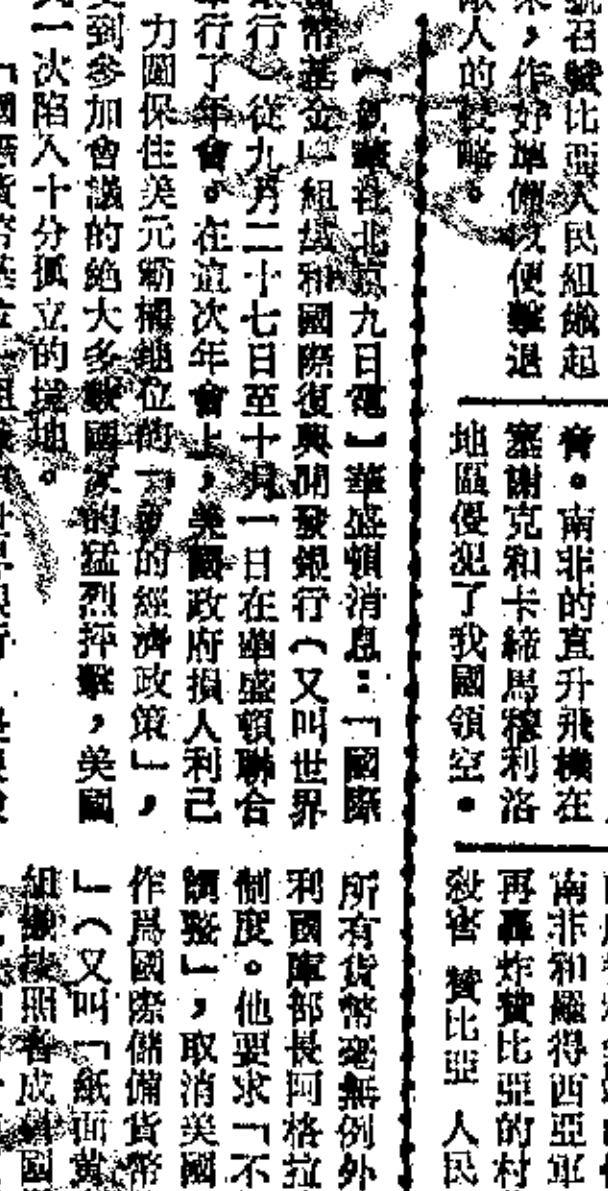 號召贊比亞人民組織起
來,作好準備以便擊退
敵人的侵略。
脅。南非的直升飛機在
塞謝克和卡締馬穆利洛
地區侵犯了我國領空。
南非和羅得西亞軍
再轟炸贊比亞的村
殺害 贊比亞 人民
【新華社北京九日電】華盛頓消息:「國際
幣基金」組織和國際復興開發銀行(又叫世界
行)從九月二十七日至十月一日在華盛頓聯合
行了年會。在這次年會上,美國政府損人利己
力圖保住美元霸權地位的「新的經濟政策」,
到參加會議的絕大多數國家的猛烈抨擊,美國
一次陷入十分孤立的境地。
所有貨幣毫無例外
利國庫部長阿格拉
制度。他要求「不
調整」,取消美國
作爲國際儲備貨幣
」(又叫「紙面黃
組織按照各成員國